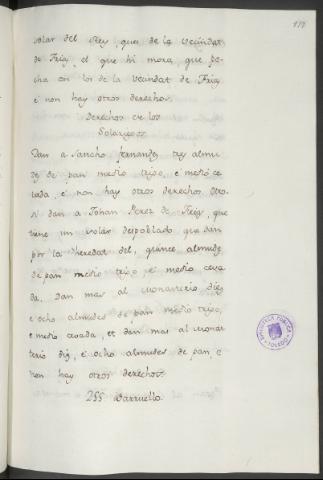 117
solar del Rey que de la vecindat
de Frias, el que hi mora, que pe-
cha con los de la vecindat de Frias
è non hay otros derechos.
Derechos de los
Solariegos
Dan a Sancho Fernandez trey almu-
des de pan medio trigo, e medio ce-
vada, è non hay otros derechos. Otro-
si dan a Johan Perez de Frias, que
tiene un solar despoblado que dan
por la heredat del, quince almudes
de pan medio trigo è medio ceva-
da. Dan mas al Monasterio diez
e ocho almudes de pan medio trigo,
e medio cevada, et dan mas al Monas-
terio diz, è ocho almudes de pan, è
non hay otros derechos.
255 Barruello
BIBLIOTECA PUBLICA
TOLEDO